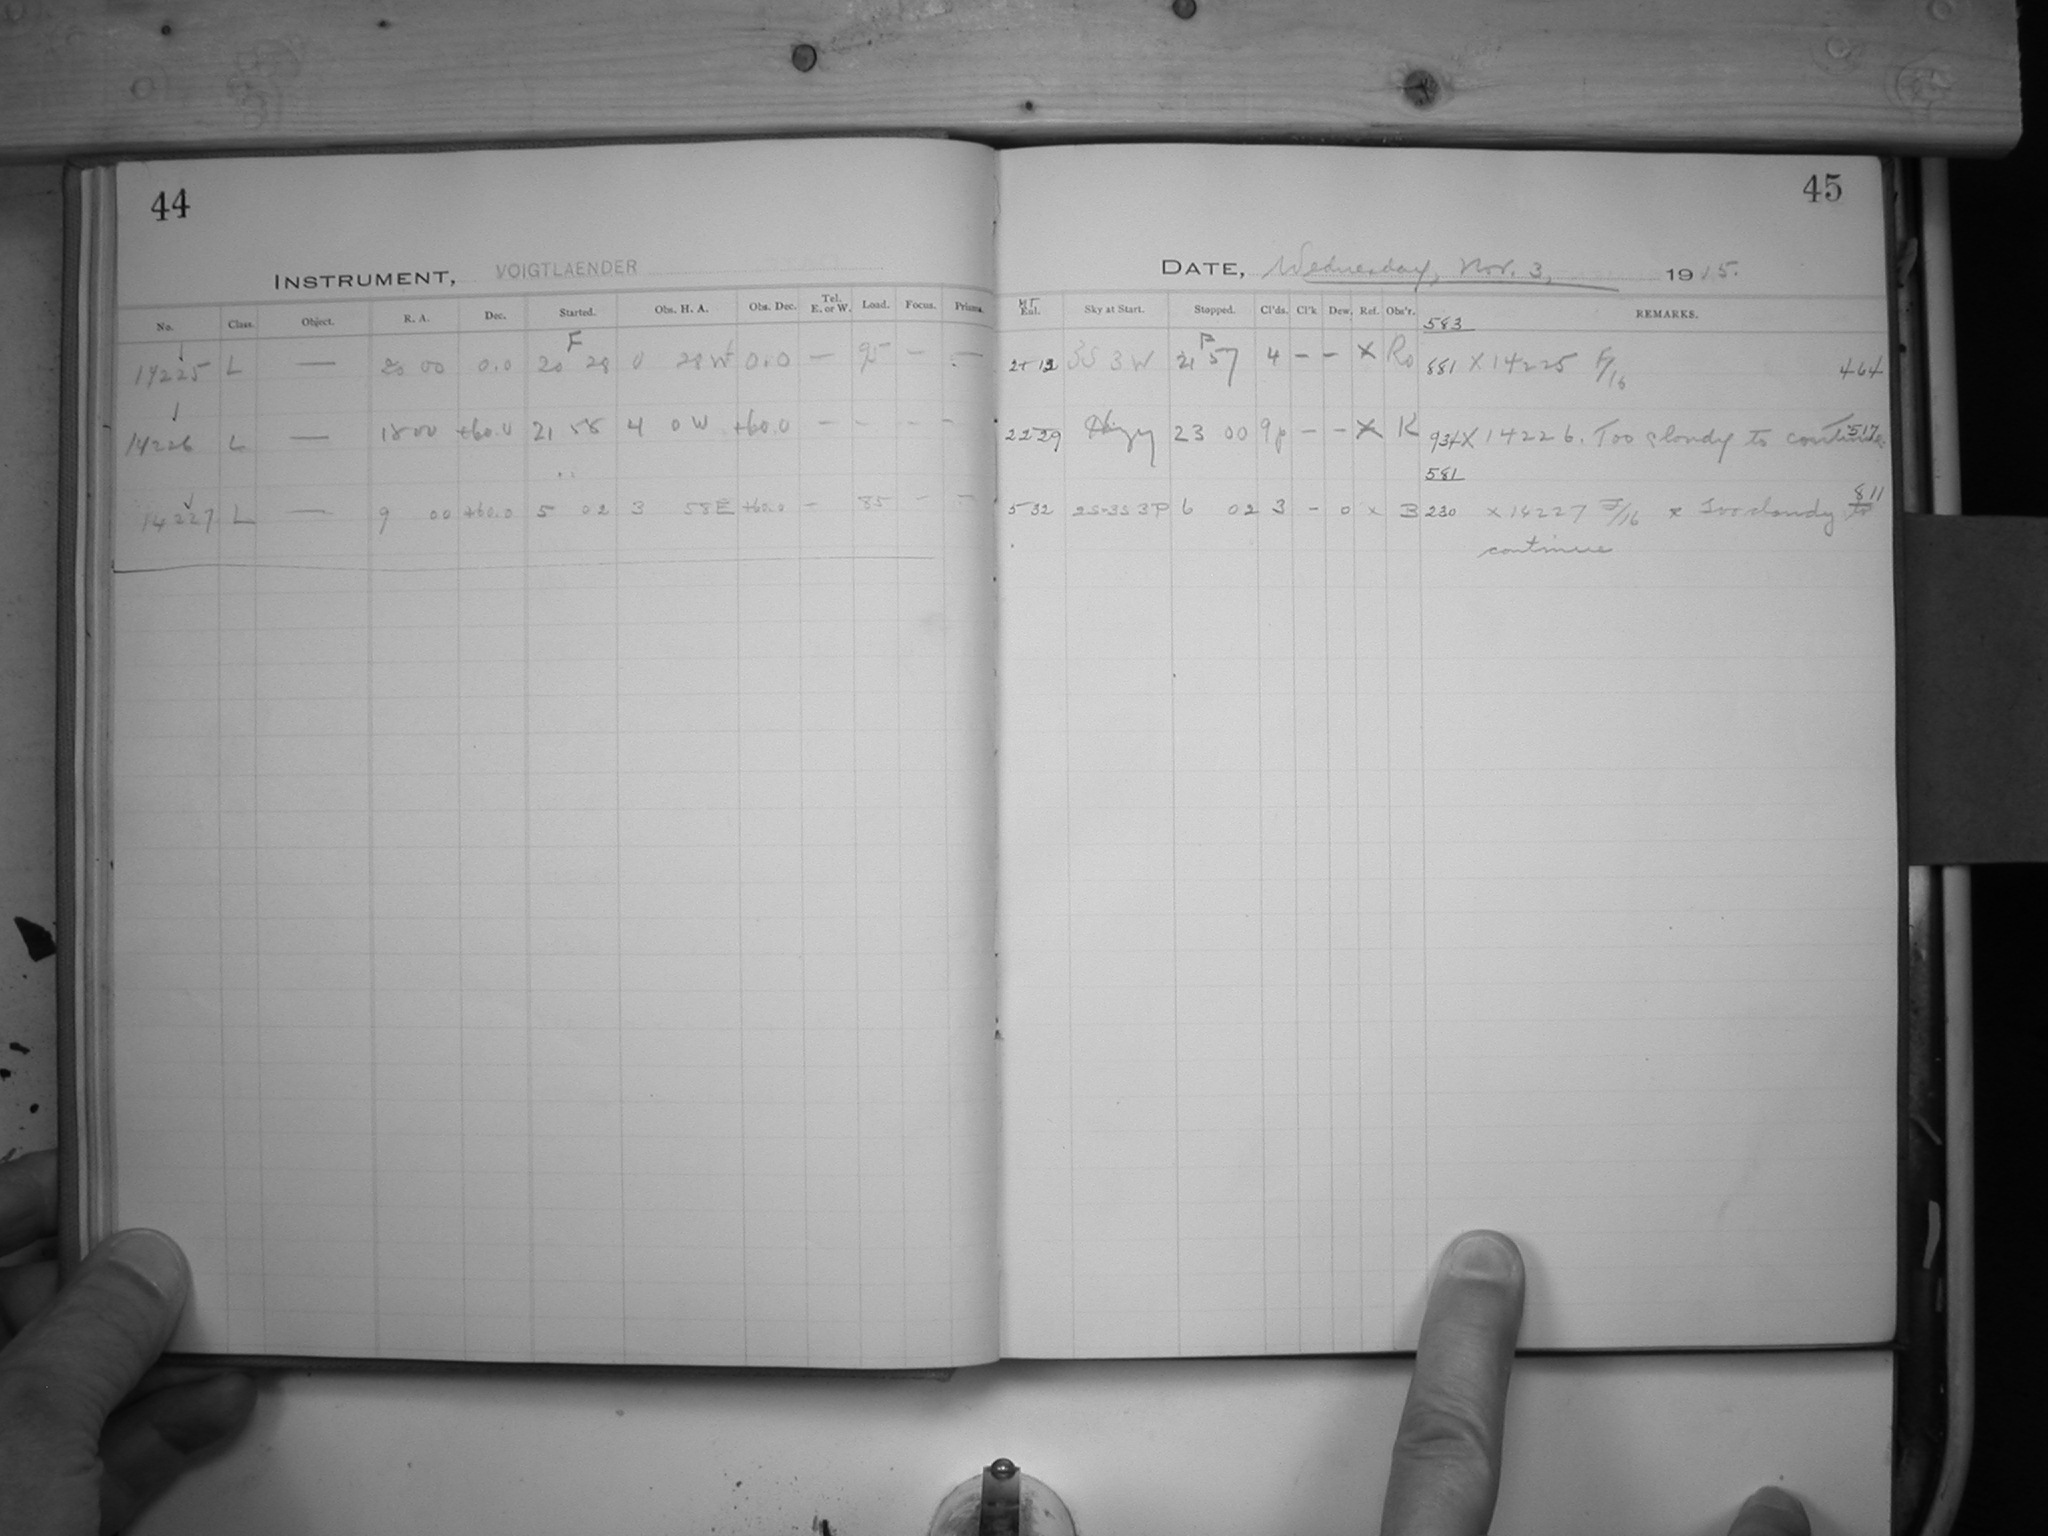 44
INSTRUMENT, VOIGTLAENDER
No. Class. Object. R. A. Dec. Started. Obs. H. A. Obs. Dec. Tel. E. or W. Load. Focus. Prisms.
F
14225 L — 20 00 0.0 20 28 0 28 W 0.0 — 95 — —
14226 L — 18 00 +60.0 21 58 4 0 W +60.0 — - - -
14227 L — 9 00 +60.0 5 02 3 58 E +60.0 - 85 - -
45
DATE, Wednesday, Nov. 3, 1915.
Sky at Start. Stopped. Cl'ds. Cl'k Dew. Ref. Obs'r. REMARKS.
583
3S 3 W 21 57 4 - - X Ro 881 X 14225 F/16 464
22 29 Hazy 23 00 9p - - X K 934 X 14226. Too cloudy to continue. 517
581
5 32 2S-3S 3P 6 02 3 - 0 x B 230 x 14227 F/16 x Too cloudy to 811
continue